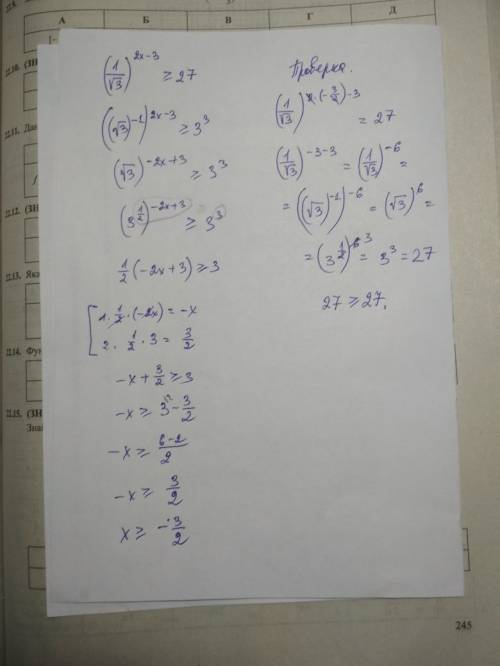 А Б В Г Д
22.10. (ЗН
22.11. Дан
22.12. (ЗН
22.13. Яка
22.14. Фун
22.15. (ЗН
Зна
(1/√3)^(2x-3) ≥ 27
((√3)^(-1))^(2x-3) ≥ 3^3
(√3)^(-2x+3) ≥ 3^3
(3^(1/2))^(-2x+3) ≥ 3^3
1/2 (-2x+3) ≥ 3
1. 1/2 · (-2x) = -x
2. 1/2 · 3 = 3/2
-x + 3/2 ≥ 3
-x ≥ 3 - 3/2
-x ≥ (6-2)/2
-x ≥ 3/2
x ≥ -3/2
Проверка.
(1/√3)^(2·(-3/2)-3) = 27
(1/√3)^(-3-3) = (1/√3)^(-6) =
= ((√3)^(-1))^(-6) = (√3)^6 =
= (3^(1/2))^6 = 3^3 = 27
27 ≥ 27.
245